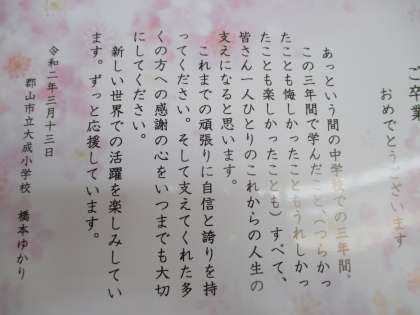 ご卒業
おめでとうございます
あっという間の中学校での三年間、
この三年間で学んだこと、（つらかっ
たことも悔しかったこともうれしかっ
たことも楽しかったことも）すべて、
皆さん一人ひとりのこれからの人生の
支えになると思います。
これまでの頑張りに自信と誇りを持
ってください。そして支えてくれた多
くの方への感謝の心をいつまでも大切
にしてください。
新しい世界での活躍を楽しみしてい
ます。ずっと応援しています。
令和二年三月十三日
郡山市立大成小学校　橋本ゆかり